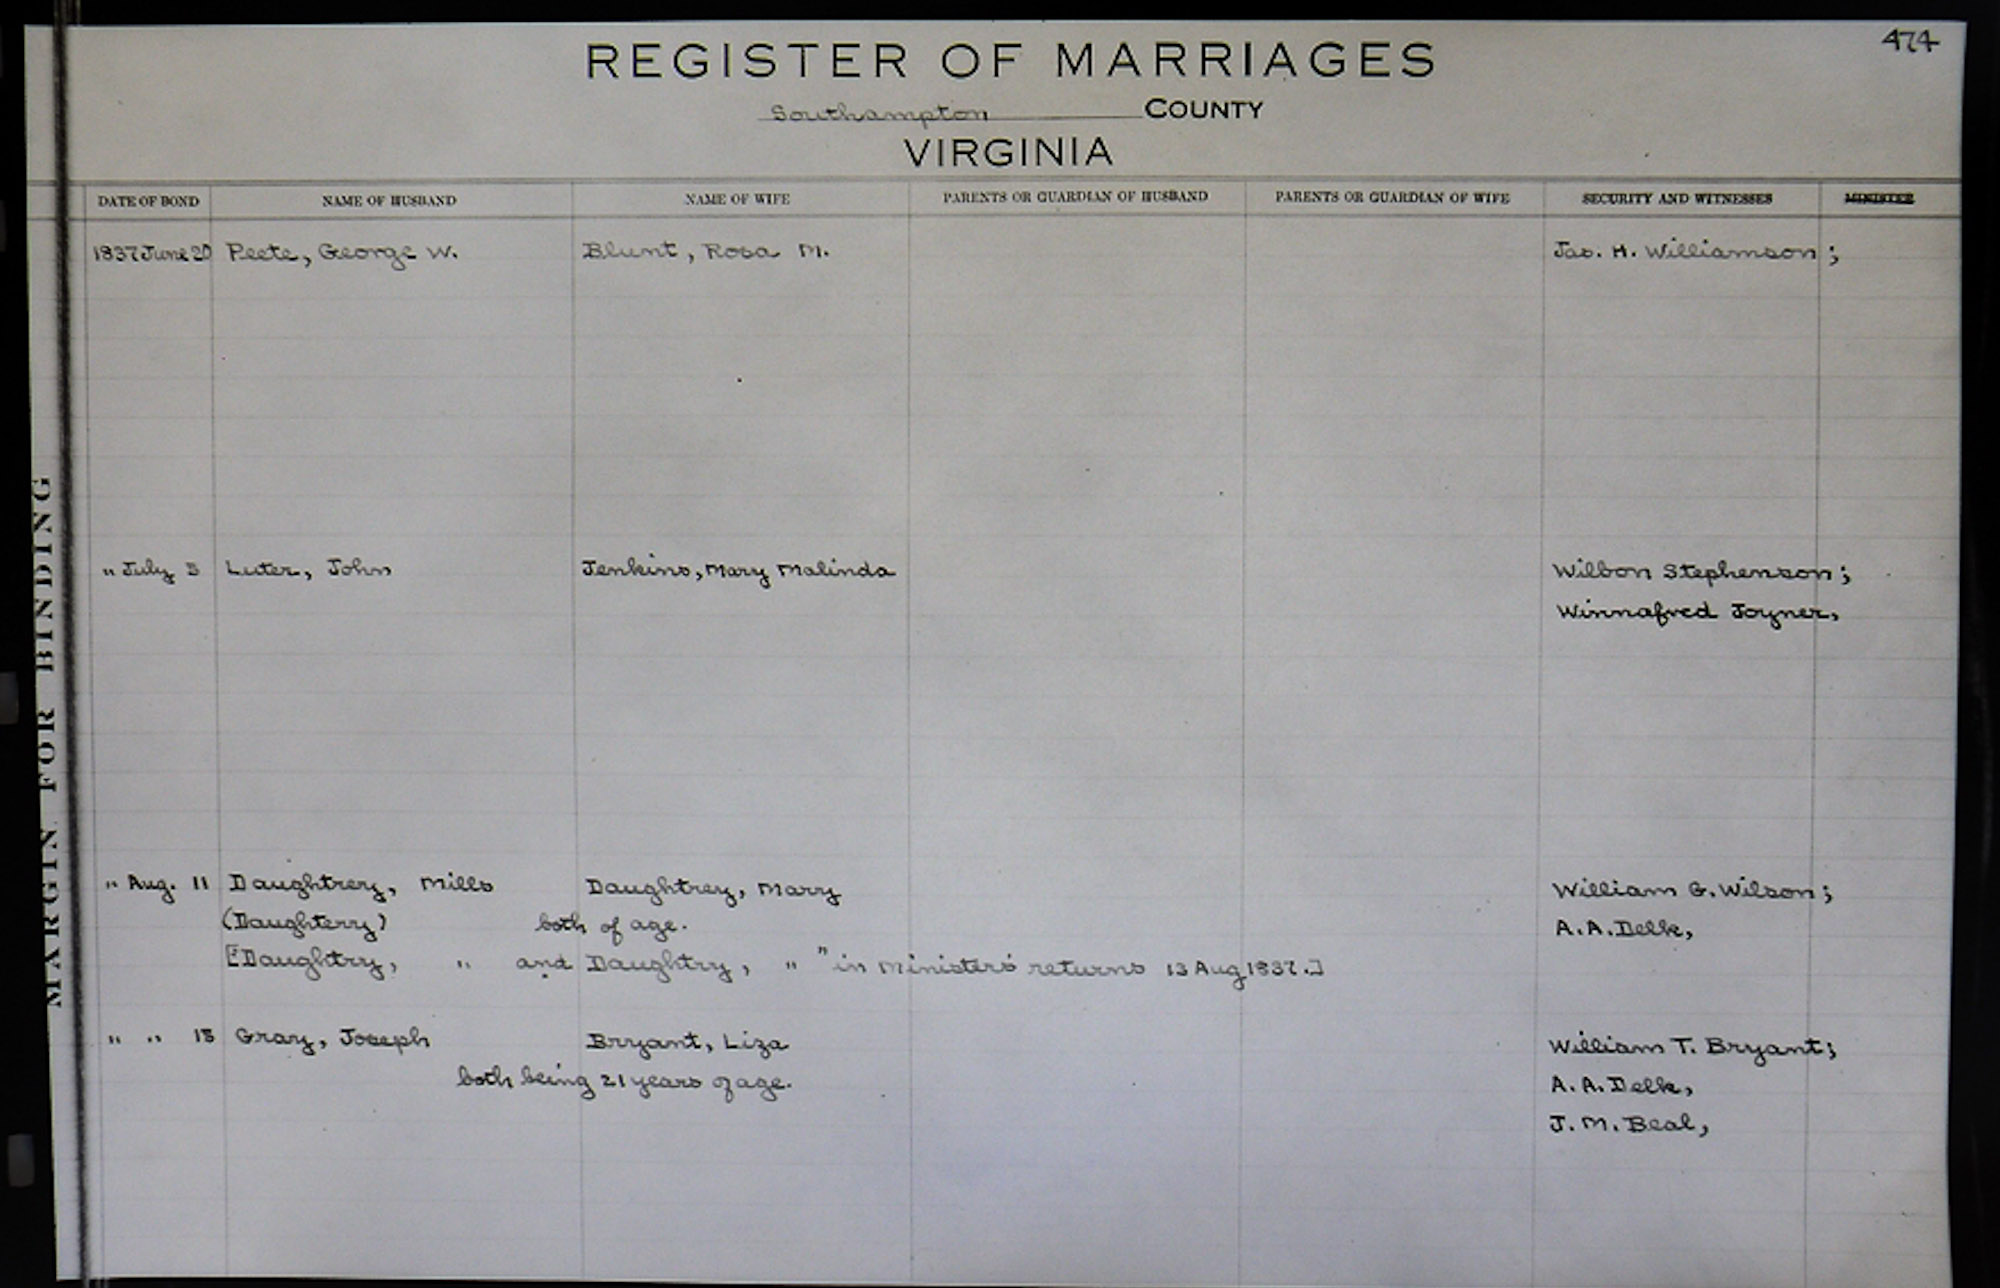 474
REGISTER OF MARRIAGES
Southampton COUNTY
VIRGINIA
DATE OF BOND NAME OF HUSBAND NAME OF WIFE PARENTS OR GUARDIAN OF HUSBAND PARENTS OR GUARDIAN OF WIFE SECURITY AND WITNESSES MINISTER
1837 June 20 Peete, George W. Blunt, Rosa M. Jas. H. Williamson ;
" July 3 Luter, John Jenkins, Mary Malinda Wilbon Stephenson ;
Winnafred Joyner,
" Aug. 11 Daughtrey, Mills Daughtrey, Mary William G. Wilson ;
(Daughterry) both of age. A. A. Delk,
["Daughtry, " and Daughtry, " " in Ministers' returns 13 Aug 1837.]
" " 18 Gray, Joseph Bryant, Liza William T. Bryant ;
both being 21 years of age. A. A. Delk,
J. M. Beal,
MARGIN FOR BINDING